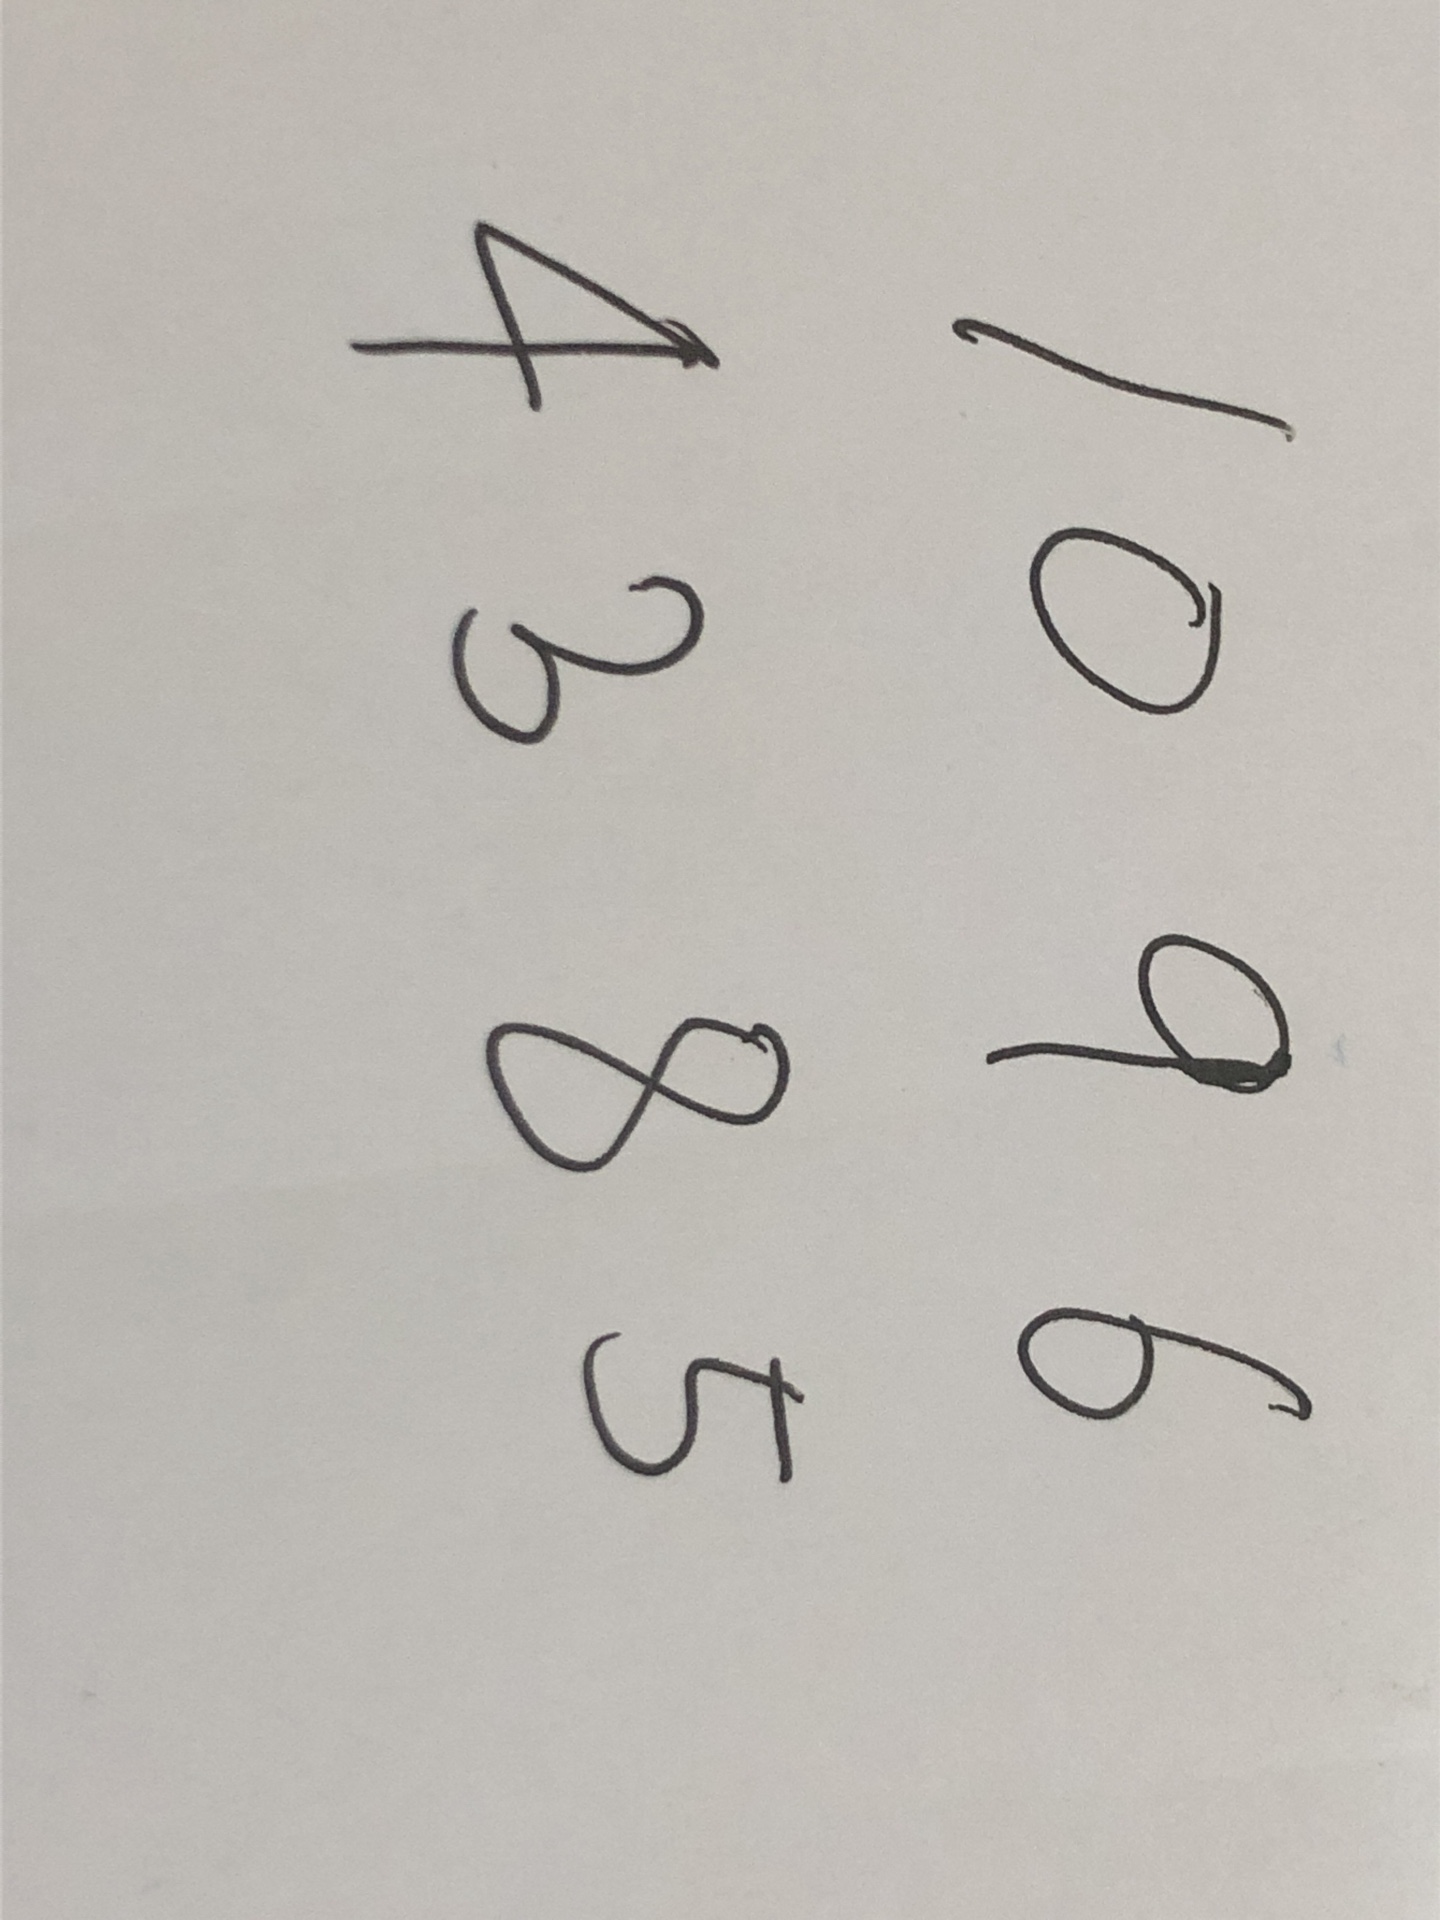 1 0 9 6
4 3 8 5